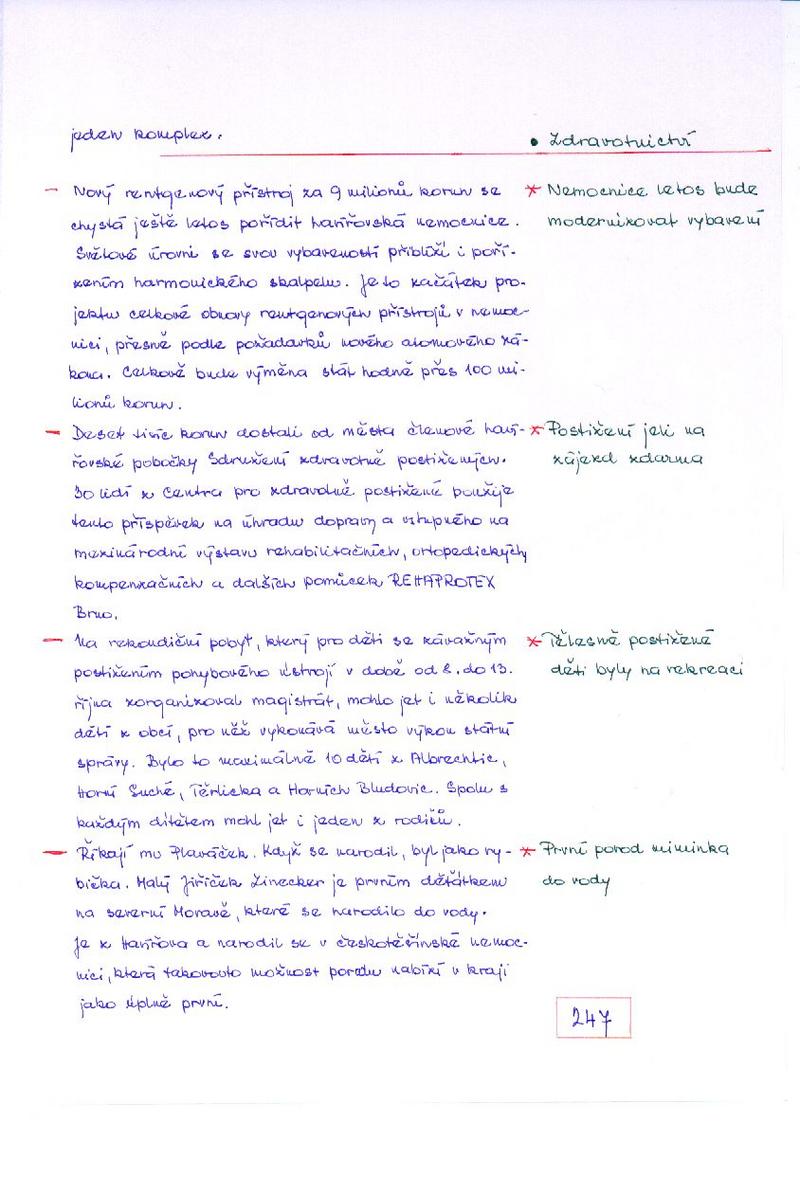 jeden komplex.
• Zdravotnictví
— Nový rentgenový přístroj za 9 milionů korun se
* Nemocnice letos bude
chystá ještě letos pořídit havířovská nemocnice.
modernizovat vybavení
Světové úrovni se svou vybaveností přiblíží i poří-
zením harmonického skalpelu. Je to začátek pro-
jektu celkové obnovy rentgenových přístrojů v nemoc-
nici, přesně podle požadavků nového atomového zá-
kona. Celkově bude výměna stát hodně přes 100 mi-
lionů korun.
— Deset tisíc korun dostali od města členové haví-
* Postižení jeli na
řovské pobočky Sdružení zdravotně postižených.
zájezd zdarma
30 lidí z Centra pro zdravotně postižené použije
tento příspěvek na úhradu dopravy a vstupného na
mezinárodní výstavu rehabilitačních, ortopedických
kompenzačních a dalších pomůcek REHAPROTEX
Brno.
— Na rekondiční pobyt, který pro děti se závažným
* Tělesně postižené
postižením pohybového ústrojí v době od 2. do 13.
děti byly na rekreaci
října zorganizoval magistrát, mohlo jet i několik
dětí z obcí, pro něž vykonává město výkon státní
správy. Bylo to maximálně 10 dětí z Albrechtic,
Horní Suché, Těrlicka a Horních Bludovic. Spolu s
každým dítětem mohl jet i jeden z rodičů.
— Říkají mu Plaváček. Když se narodil, byl jako ry-
* První porod miminka
bička. Malý Jiříček Linecker je prvním děťátkem
do vody
na severní Moravě, které se narodilo do vody.
Je z Havířova a narodil se v českotěšínské nemoc-
nici, která takovouto možnost porodu nabízí v kraji
jako úplně první.
247